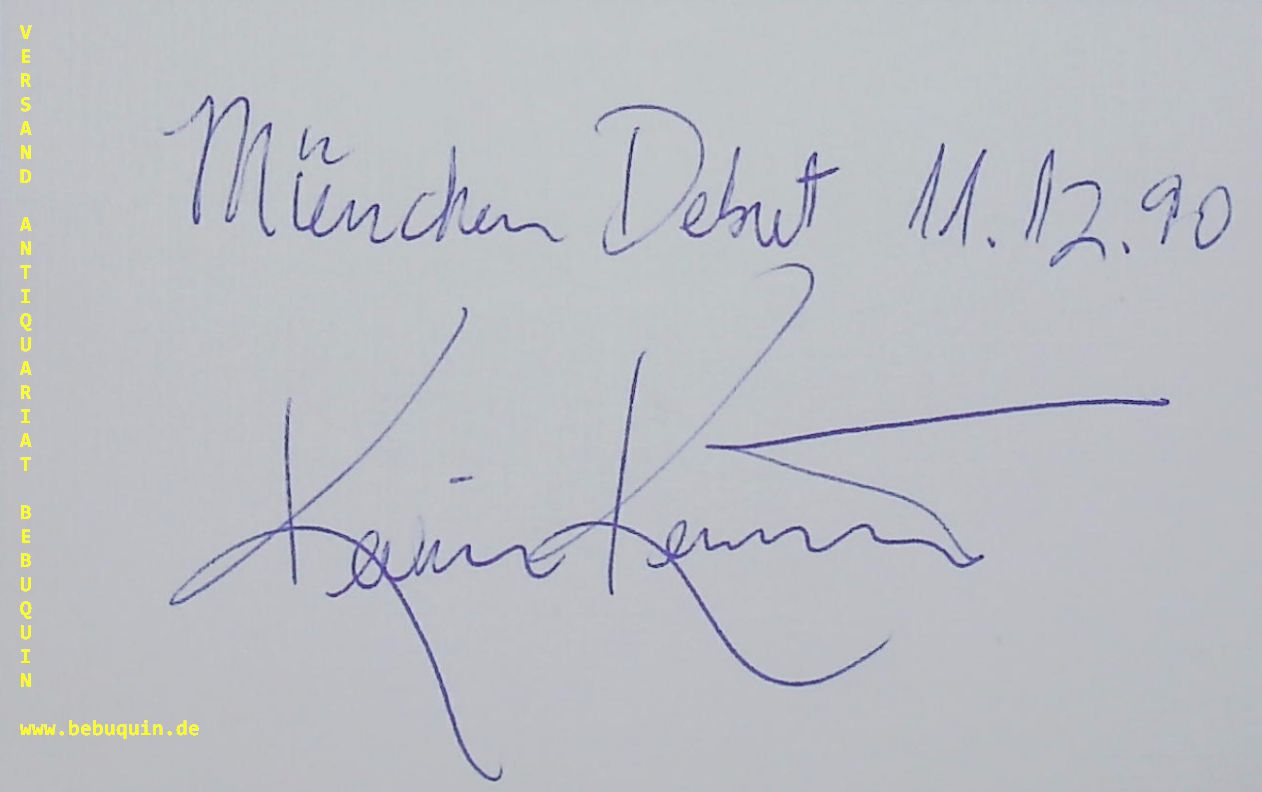 VERSAND ANTIQUARIAT BEBUQUIN
www.bebuquin.de
München Debut 11.12.90
Kevin